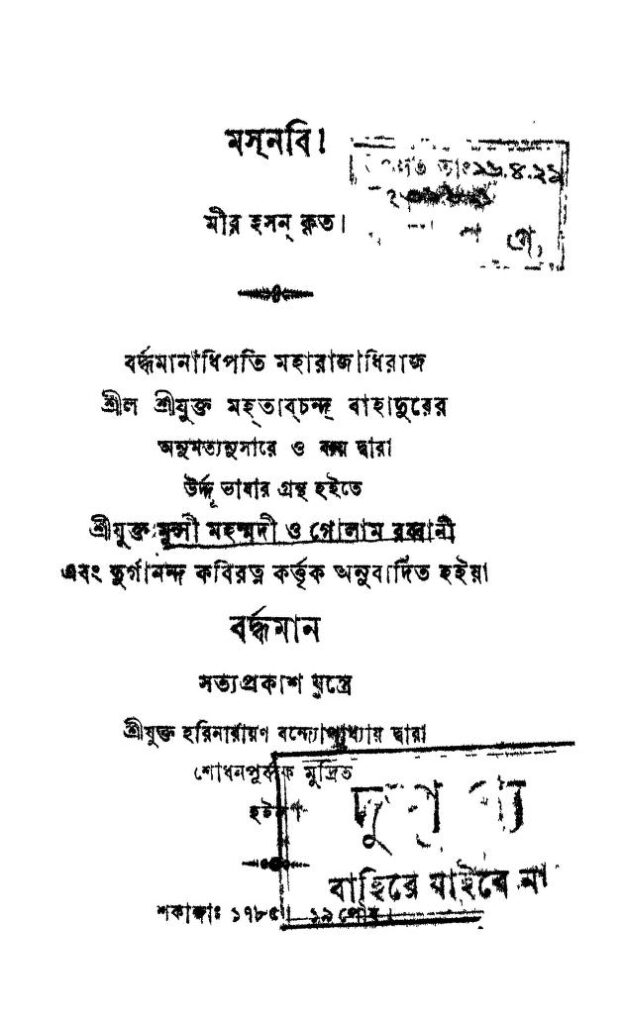 মস্‌নবি।
তাং ১৬.৪.২১
মীর হসন্ কৃত।
বর্দ্ধমানাধিপতি মহারাজাধিরাজ
শ্রীল শ্রীযুক্ত মহ্‌তাব্‌চন্দ্ বাহাদুরের
অনুমত্যনুসারে ও ব্যয় দ্বারা
উর্দ্দূ ভাষার গ্রন্থ হইতে
শ্রীযুক্ত মুন্সী মহম্মদী ও গোলাম রব্বানী
এবং দুর্গানন্দ কবিরত্ন কর্ত্তৃক অনুবাদিত হইয়া
বর্দ্ধমান
সত্যপ্রকাশ যন্ত্রে
শ্রীযুক্ত হরিনারায়ণ বন্দ্যোপাধ্যায় দ্বারা
শোধনপূর্ব্বক মুদ্রিত
হইল
দুষ্প্রাপ্য
বাহিরে যাইবে না
শকাব্দাঃ ১৭৮৫। ১৯ পৌষ।